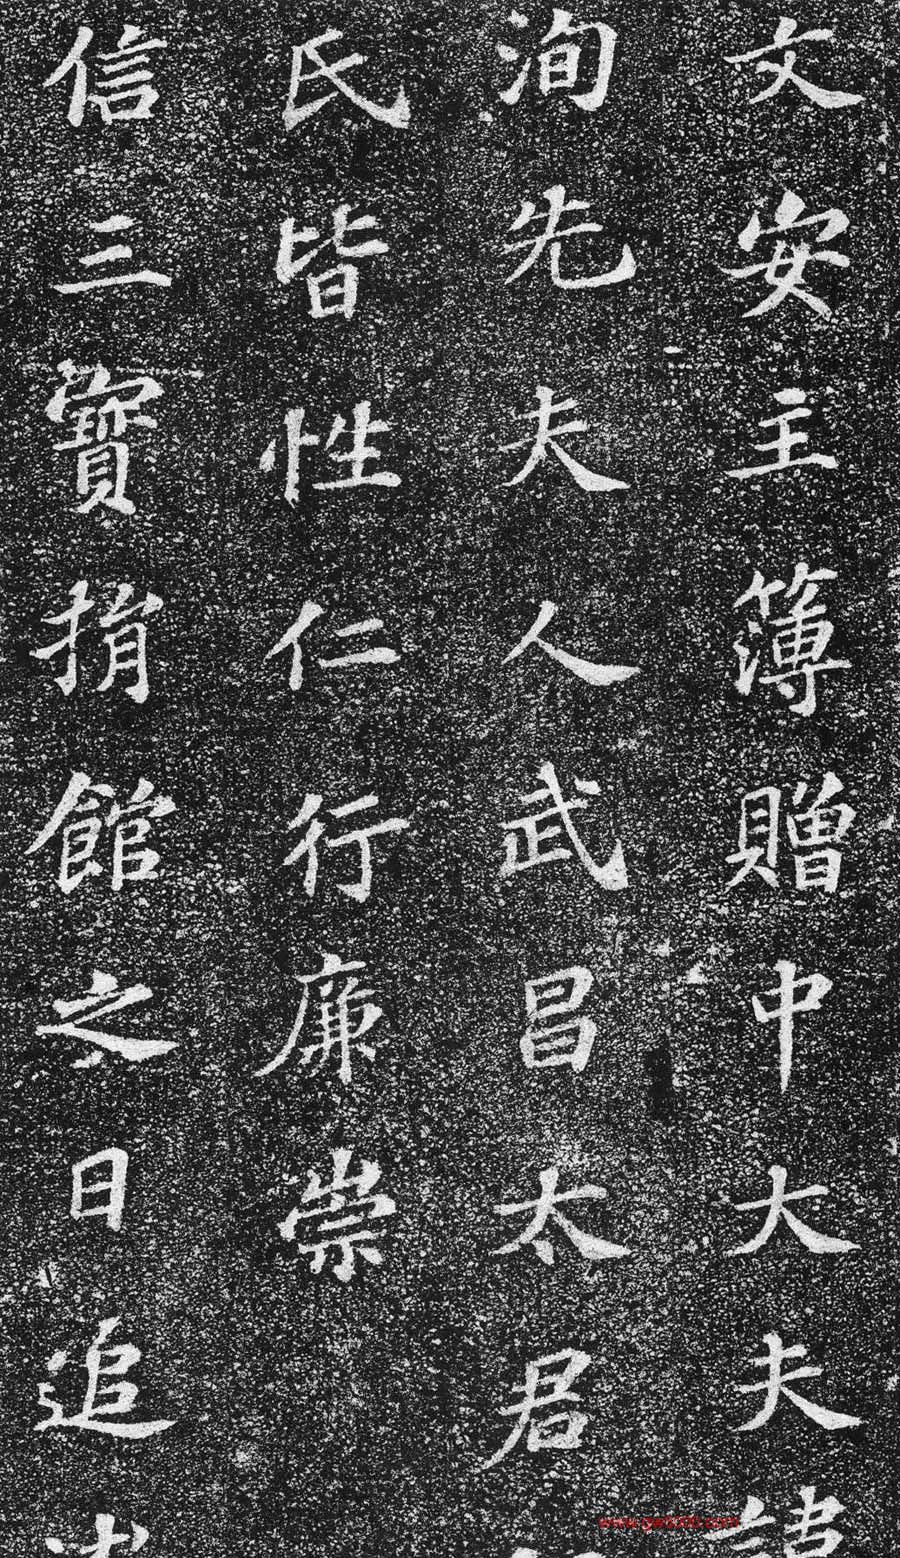 文安主簿贈中大夫諱
洵先夫人武昌太君
氏皆性仁行廉崇
信三寶捐館之日追